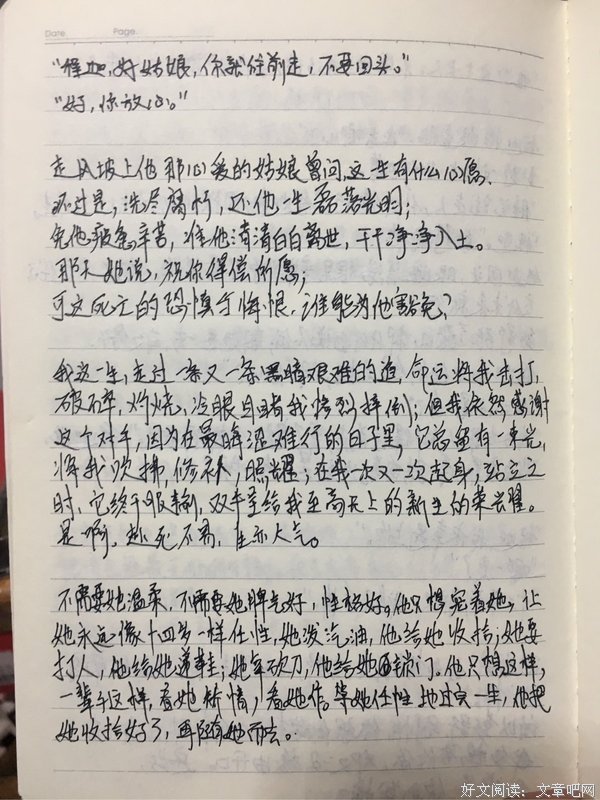 Date. Page.
“程迦,好姑娘,你就往前走,不要回头。”
“好,你放心。”
走风坡上他那心爱的姑娘曾问,这一生有什么心愿、
不过是,洗尽腐朽,还他一生磊落光明;
免他疲惫辛苦,准他清清白白离世,干干净净入土。
那天她说,祝你得偿所愿;
可这死亡的恐惧与悔恨,谁能为他豁免?
我这一生,走过一条又一条黑暗艰难的道,命运将我击打,
破碎,灼烧,冷眼目睹我惨烈摔倒;但我依然感谢
这个对手,因为在最晦涩难行的日子里,它总留有一束光,
将我吹拂,修补,照耀;在我一次又一次起身,站立之
时,它终于服输,双手呈给我至高无上的新生的荣耀。
是啊,赴死不易,生亦大气。
不需要她温柔,不需要她脾气好,性格好。他只想宠着她,让
她永远像十四岁一样任性,她泼汽油,他给她收拾;她要
打人,他给她递鞋;她拿砍刀,他给她锁门。他只想这样,
一辈子这样,看她矫情,看她作。等她任性地过完一生,他把
她收拾好了,再随她而去。
好文阅读:文章吧网